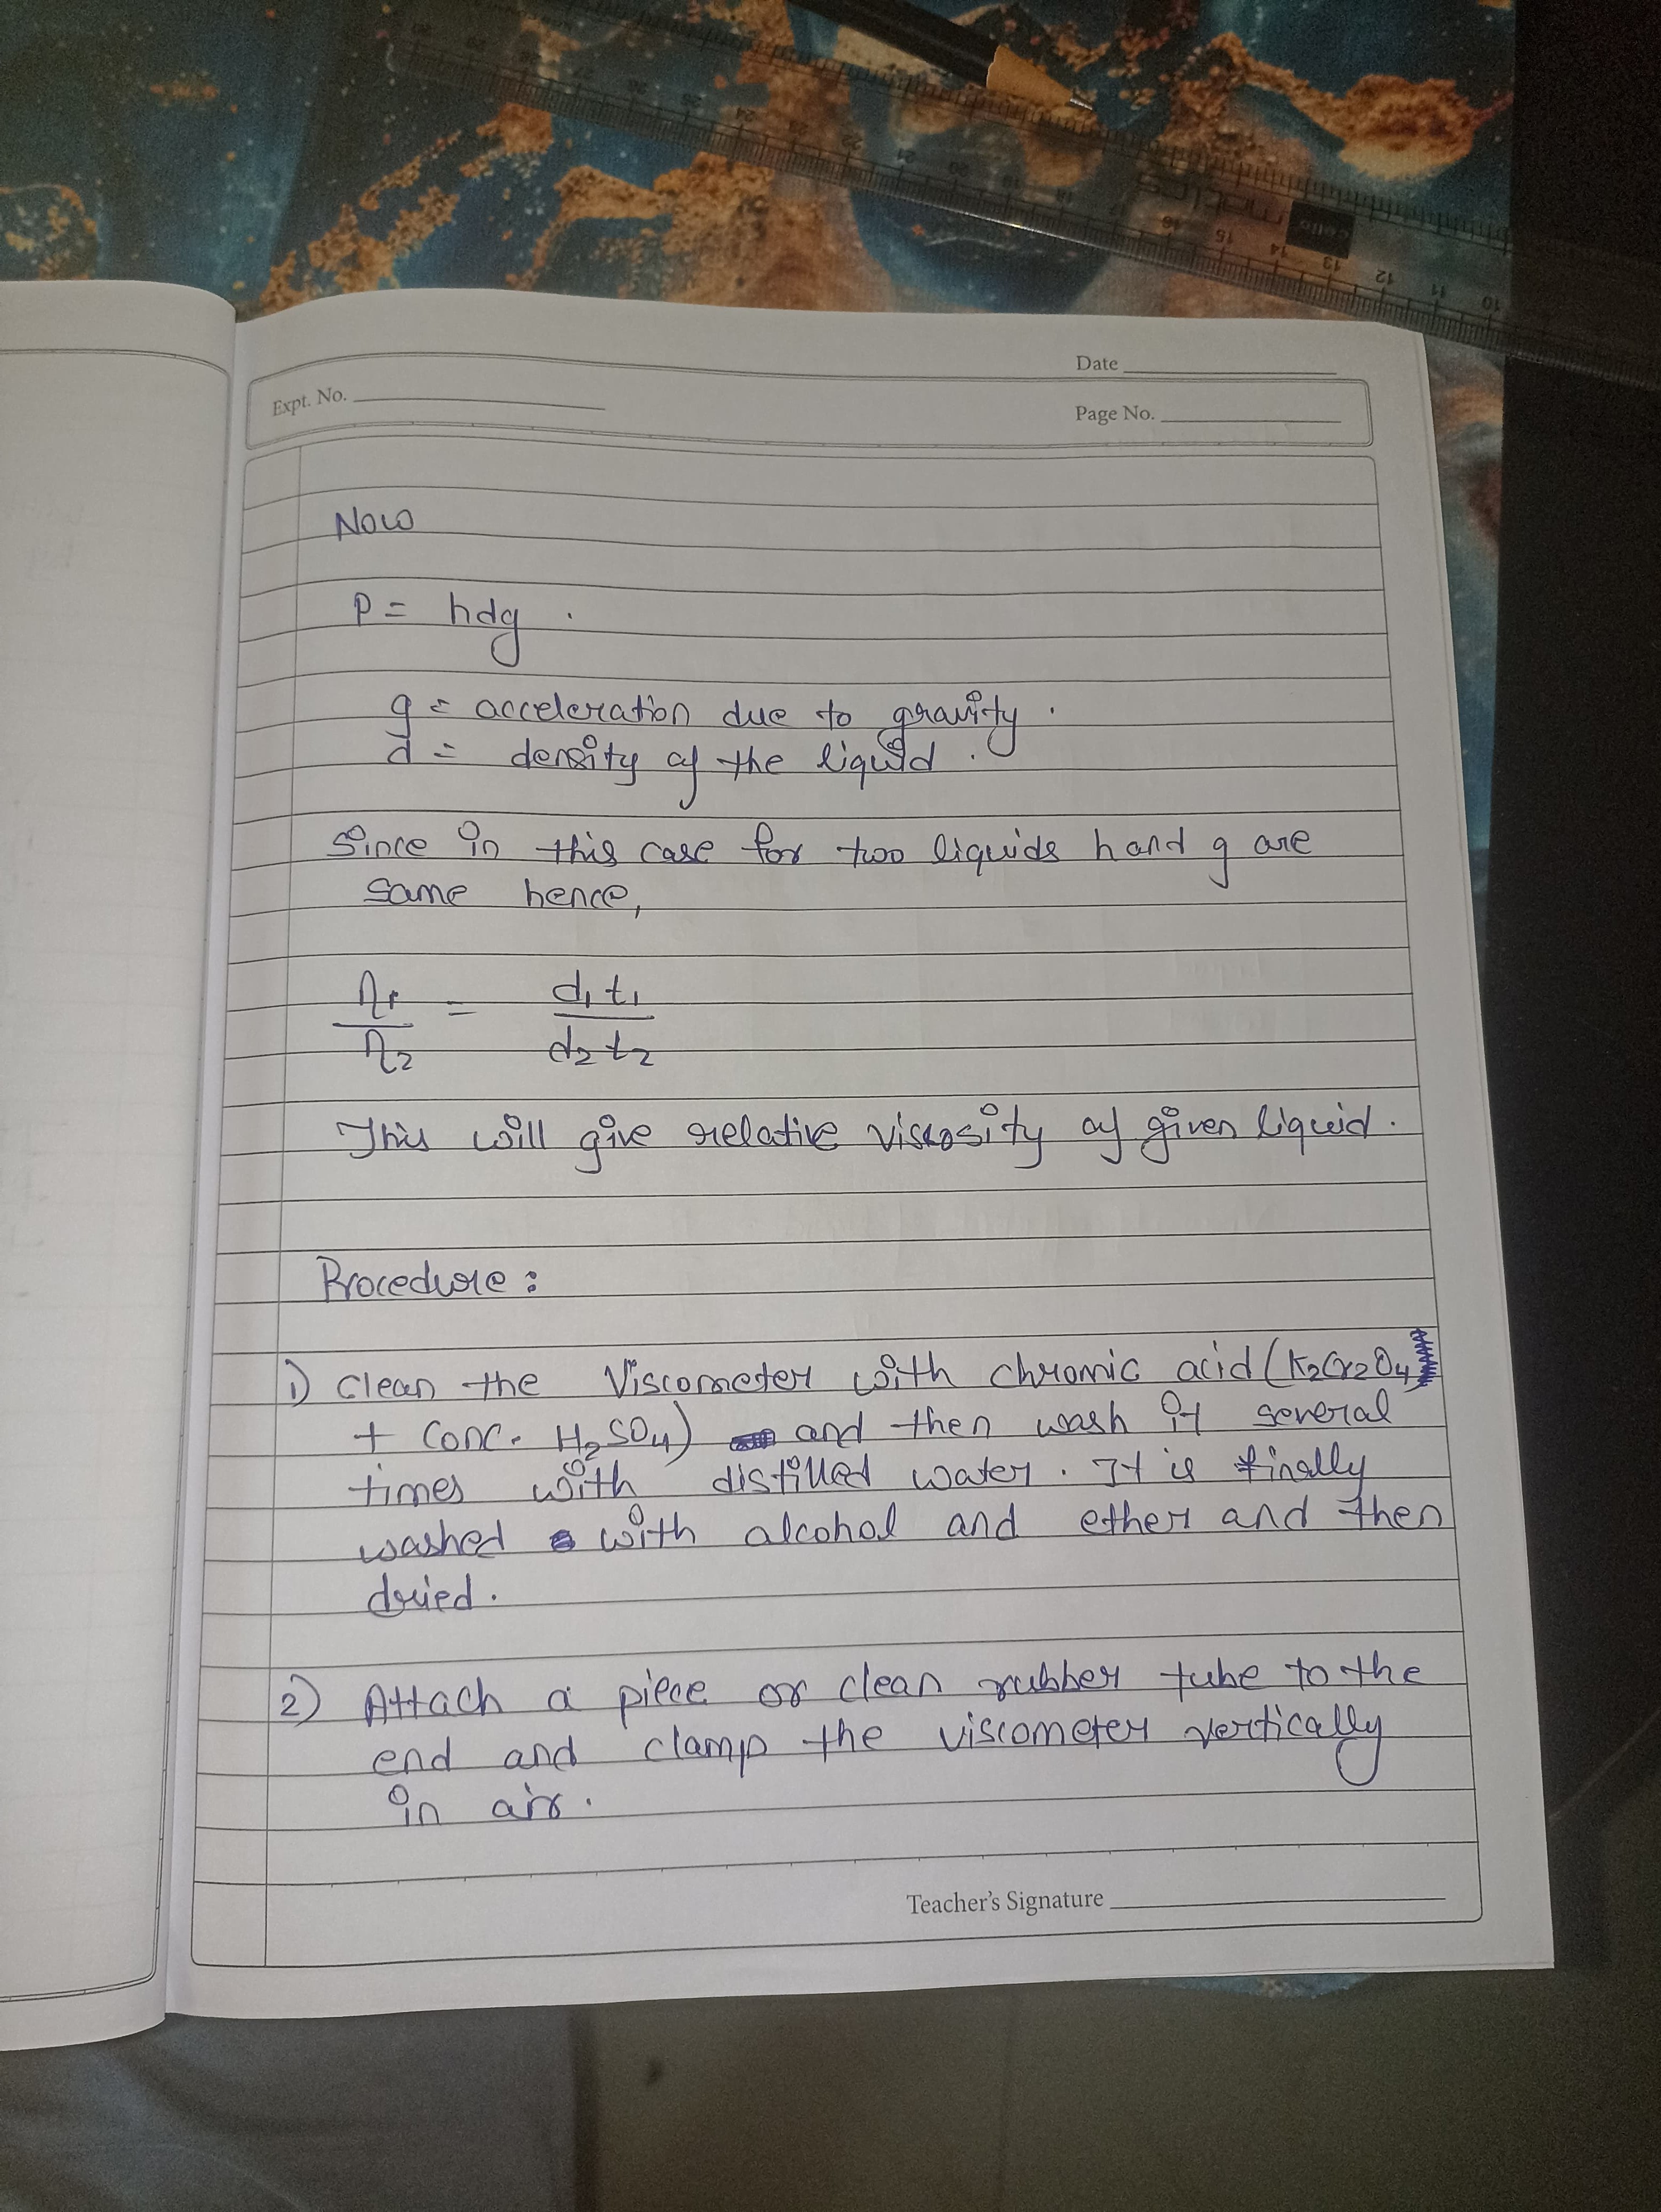 Date
Expt. No.
Page No.
Now
P = hdg .
g = acceleration due to gravity .
d = density of the liquid .
Since in this case for two liquids h and g are
same hence,
η1/η2 = d1 t1/d2 t2
This will give relative viscosity of given liquid .
Procedure :
1) Clean the Viscometer with chromic acid (K2Cr2O4
+ Conc. H2SO4) and then wash it several
times with distilled water . It is finally
washed with alcohol and ether and then
dried .
2) Attach a piece or clean rubber tube to the
end and clamp the viscometer vertically
in air .
Teacher's Signature